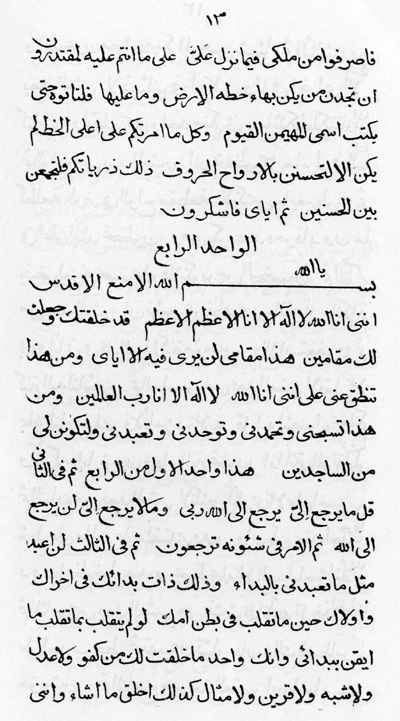 ١٣
فاصرفوا من ملكى فيما نزل علىّ على ما انتم عليه لمقتدرون
ان تجدن من يكن بهاء خطه الارض وما عليها فلتاتوه حتى
يكتب اسمى المهيمن القيوم وكل ما امرتكم على اعلى الخط لم
يكن الا لتحسنن بالارواح الحروف ذلك ذرياتكم فلتجمعن
بين الحسنين ثم اياى فاشكرون
الواحد الرابع
يا الله
بسم الله الامنع الاقدس
اننى انا الله لا اله الا انا الاعظم الاعظم قد خلقتك وجعلت
لك مقامين هذا مقامى لن يرى فيه الا اياى ومن هذا
تنطق عنى على اننى انا الله لا اله الا انا رب العالمين ومن
هذا تسبحنى وتحمدنى وتوحدنى وتعبدنى ولتكونن لى
من الساجدين هذا واحد الاول من الرابع ثم فى الثانى
قل ما يرجع الىّ يرجع الى الله ربى وما لا يرجع الىّ لن يرجع
الى الله ثم الامر فى شئونه ترجعون ثم فى الثالث لن اعبد
مثل ما تعبدنى بالبداء وذلك ذات بدائك فى اخراك
واولاك حين ما تقلب فى بطن امك لو لم يتقلب بما تقلب ما
ايقن ببدائى وانك واحد ما خلقت لك من كفو ولا عدل
ولا شبه ولا قرين ولا مثال كذلك اخلق ما اشاء واننى